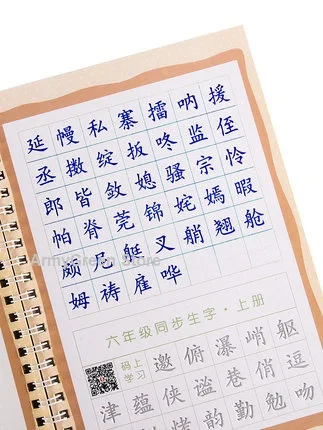 延幔私寨擂呐援
丞檄绽扳咚监侄
郎皆敛媳骚宗怜
帕脊莞锦姹嫣暇
颇凫艇叉艄翘舱
姆祷雇哗
ArmyGreen Store
六年级同步生字·上册
码上学习
邀俯瀑峭躯
津蕴侠谧巷俏逗
烤韵勤勉吻